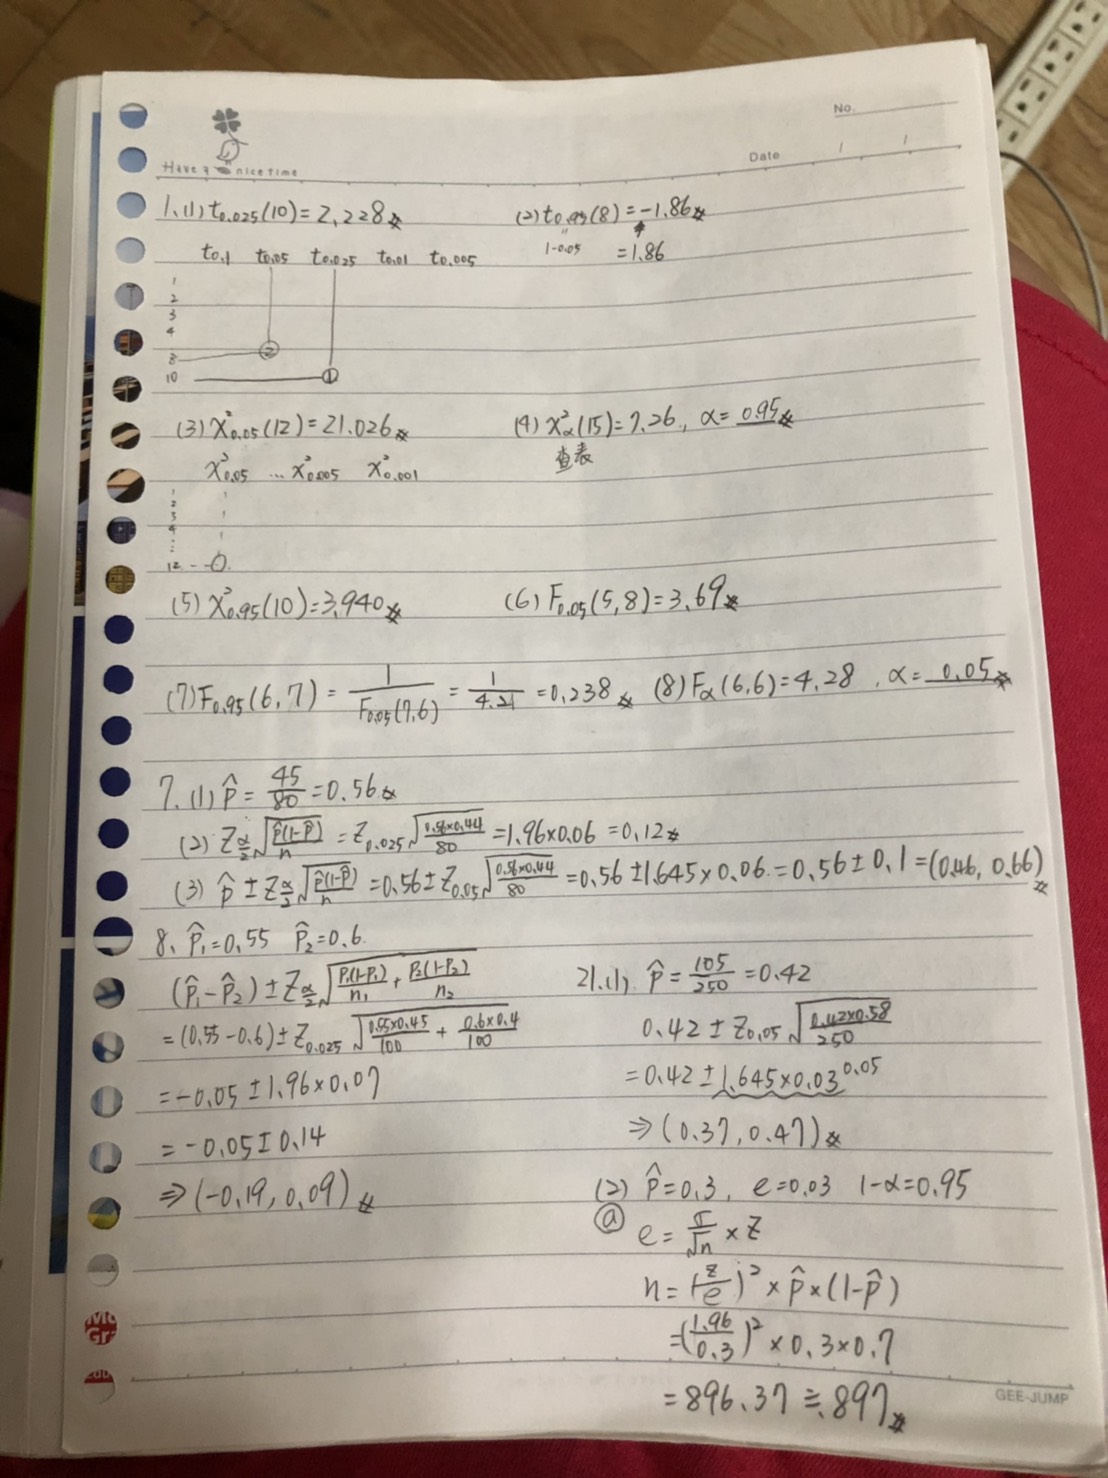 No.
Date
Have a nice time
1.(1) t0.025(10)=2.228※ (2) t0.95(8)=-1.86※
1-0.05 =1.86
t0.1 t0.05 t0.025 t0.01 t0.005
1
2
3
4
8 ②
10 ①
(3) χ²0.05(12)=21.026※ (4) χ²α(15)=7.26, α=0.95※
查表
χ²0.05 … χ²0.005 χ²0.001
1
2
3
4
⋮
12
(5) χ²0.95(10)=3.940※ (6) F0.05(5,8)=3.69※
(7) F0.95(6,7)=1/F0.05(7,6)=1/4.21=0.238※ (8) Fα(6,6)=4.28, α=0.05※
7.(1) p̂=45/80=0.56※
(2) Zα/2√(p̂(1-p̂)/n)=Z0.025√(0.56×0.44/80)=1.96×0.06=0.12※
(3) p̂±Zα/2√(p̂(1-p̂)/n)=0.56±Z0.05√(0.56×0.44/80)=0.56±1.645×0.06=0.56±0.1=(0.46, 0.66)※
8. p̂₁=0.55 p̂₂=0.6
(p̂₁-p̂₂)±Zα/2√(P₁(1-P₁)/n₁+P₂(1-P₂)/n₂)
=(0.55-0.6)±Z0.025√(0.55×0.45/100+0.6×0.4/100)
=-0.05±1.96×0.07
=-0.05±0.14
⇒(-0.19, 0.09)※
21.(1). p̂=105/250=0.42
0.42±Z0.05√(0.42×0.58/250)
=0.42±1.645×0.03 0.05
⇒(0.37, 0.47)※
(2) p̂=0.3, e=0.03 1-α=0.95
ⓐ e=σ/√n×Z
n=(z/e)²×p̂×(1-p̂)
=(1.96/0.3)²×0.3×0.7
=896.37≒897※
GEE-JUMP